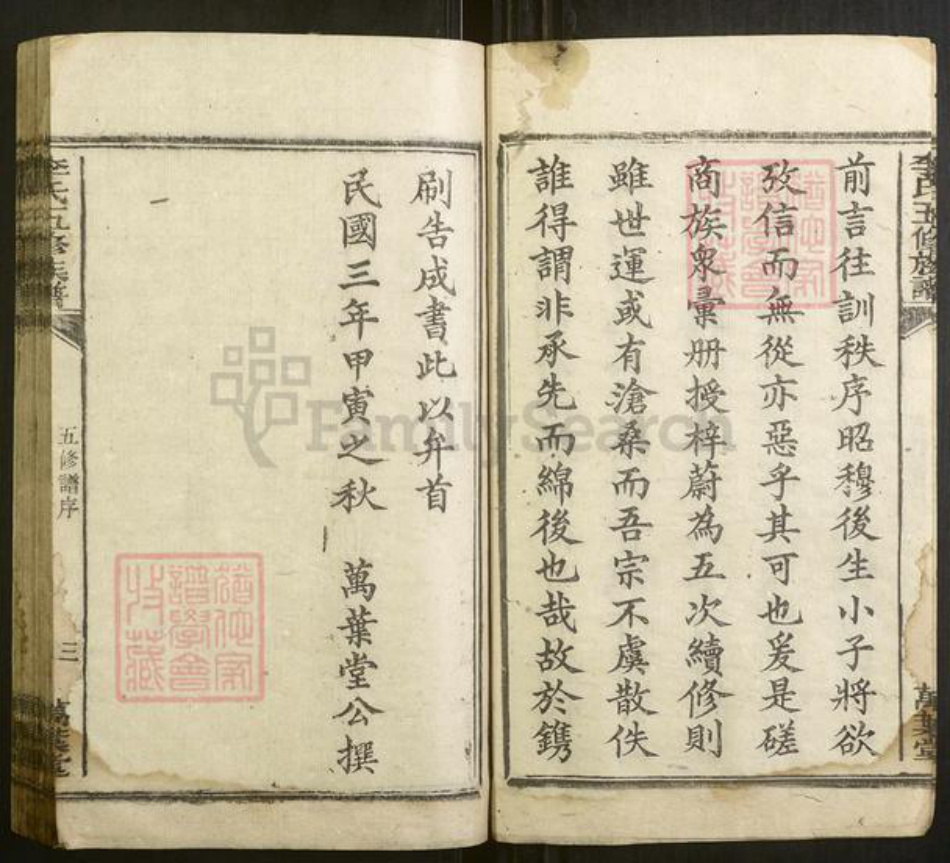 李氏五修族譜
萬葉堂
前言往訓秩序昭穆後生小子將欲
攷信而無從亦惡乎其可也爰是磋
商族衆彙册授梓蔚為五次續修則
雖世運或有滄桑而吾宗不虞散佚
誰得謂非承先而綿後也哉故於鎸
刷告成書此以弁首
民國三年甲寅之秋 萬葉堂公撰
李氏五修族譜
五修譜序
三
萬葉堂
FamilySearch
譜學會
收藏